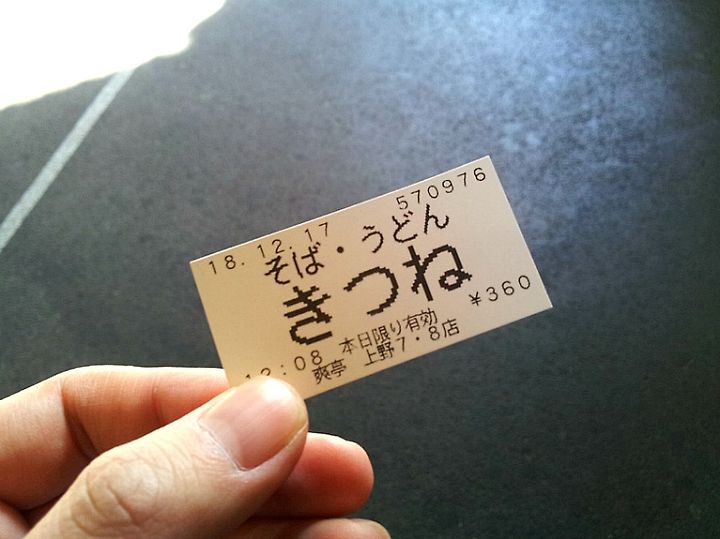 570976
18.12.17
そば・うどん
きつね
¥360
12:08 本日限り有効
爽亭 上野7・8店